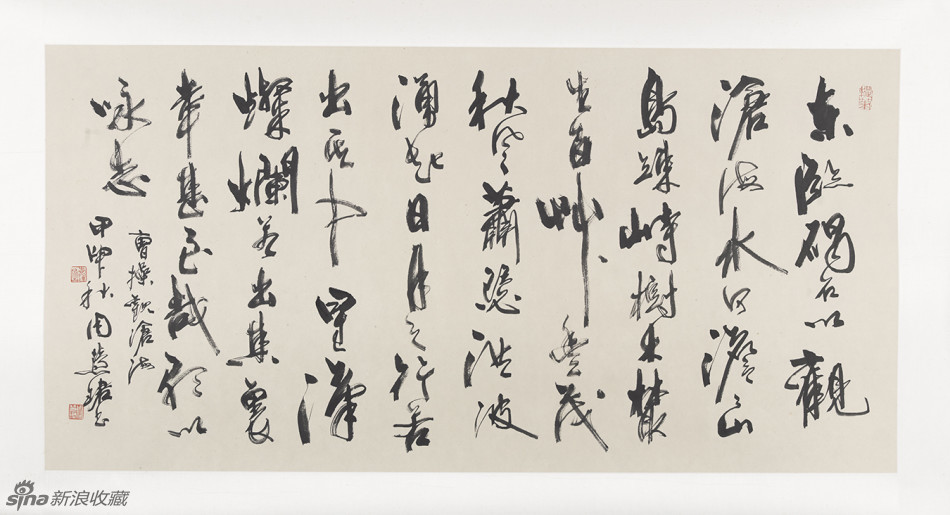 东臨碣石以觀
滄海水何澹々山
島竦峙樹木叢
生百艸豐茂
秋風蕭瑟洪波
涌起日月之行若
出其中星漢
燦爛若出其裏
幸甚至哉歌以
咏志
曹操觀滄海
甲申秋周慧珺书
sina新浪收藏